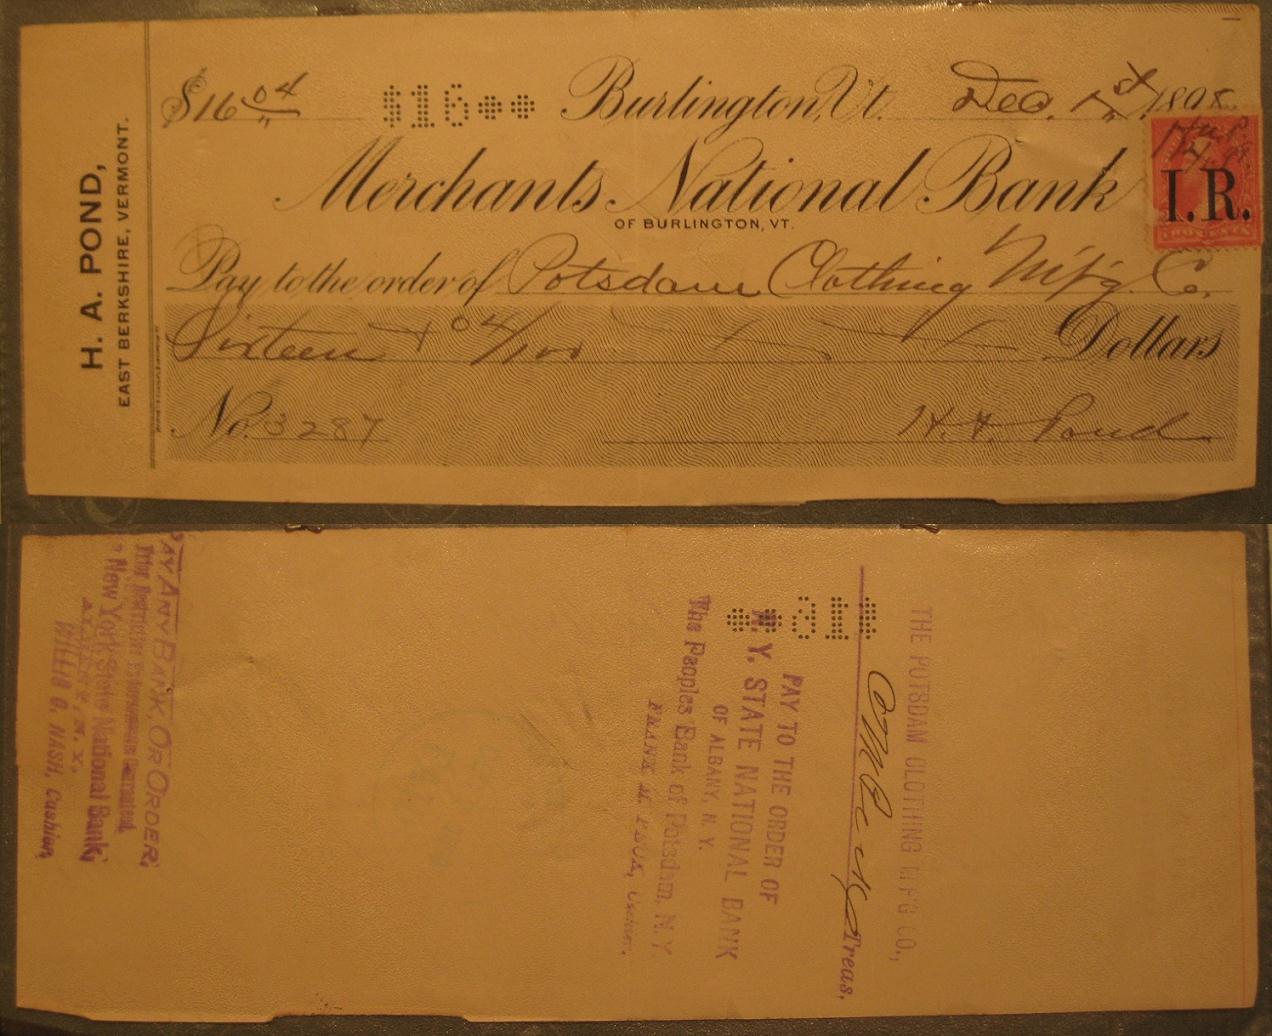 H. A. POND,
EAST BERKSHIRE, VERMONT.
$16 04 $16** Burlington, Vt. Dec. 1st, 1898.
Merchants National Bank
OF BURLINGTON, VT.
I.R.
TWO CENTS
Pay to the order of Potsdam Clothing M'f'g. Co.
Sixteen + 04/100 Dollars
No. 3287
H. A. Pond
THE POTSDAM CLOTHING M'F'G CO.,
Treas.
$16**
PAY TO THE ORDER OF
N. Y. STATE NATIONAL BANK
OF ALBANY, N. Y.
The Peoples Bank of Potsdam, N. Y.
FRANK Cashier.
PAY ANY BANK, OR ORDER,
New York State National Bank,
ALBANY, N. Y.
WILLIS G. NASH, Cashier,